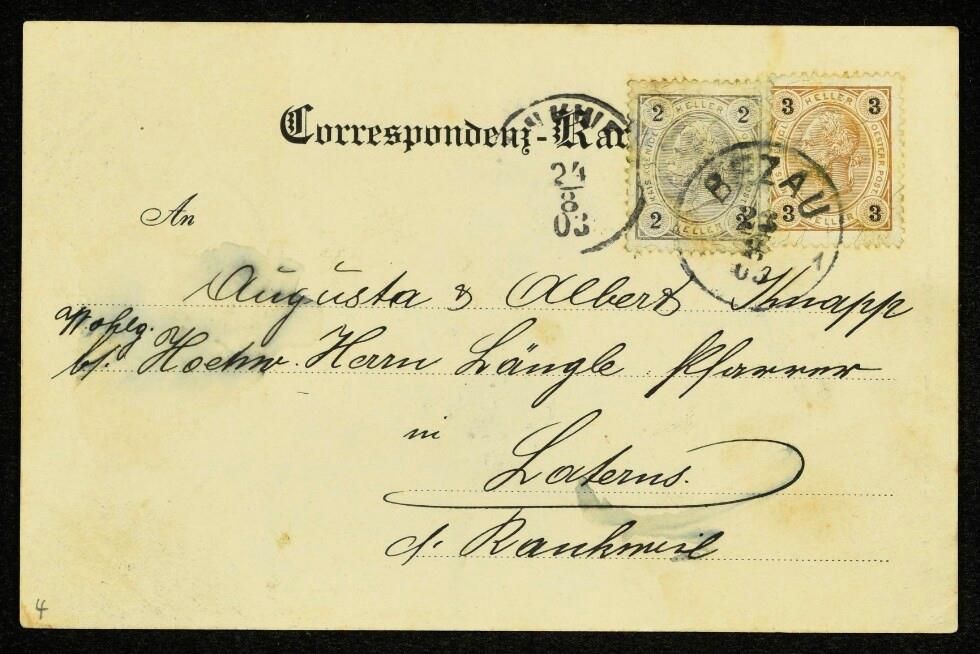 Correspondenz-Kar
24
8
03
2 HELLER 2
2 HELLER 2
3 HELLER 3
3 3
BEZAU
03
1
An
Augusta & Albert Knapp
Wohlg.
b/. Hochw. Herrn Längle Pfarrer
in
Laterns.
d/. Rankweil
4